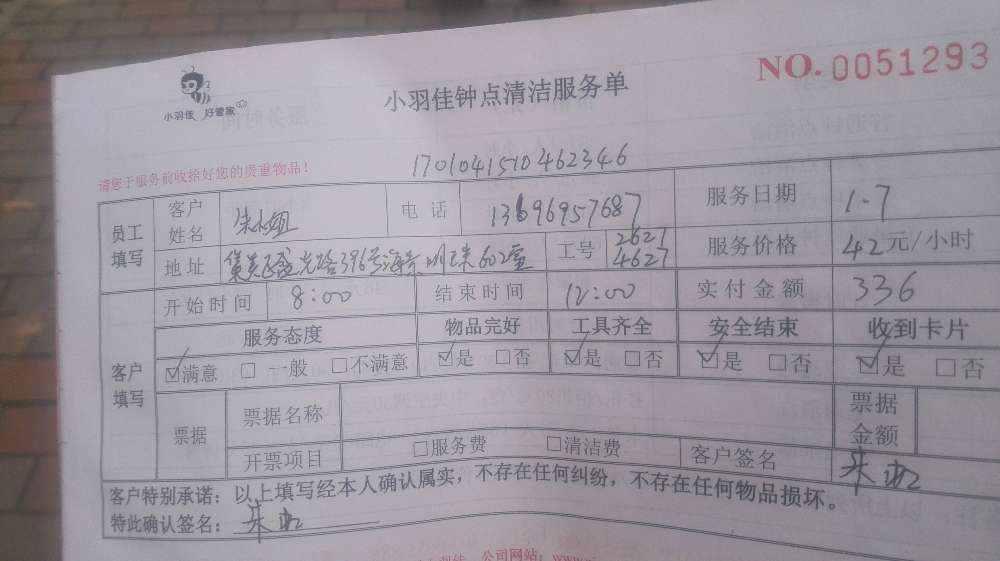 小羽佳 好管家
小羽佳钟点清洁服务单
NO. 0051293
请您于服务前收拾好您的贵重物品！
1701041510462346
员工填写 客户姓名 朱小姐 电话 13696957687 服务日期 1.7
地址 集美区盛光路396号海景明珠602室 工号 2627 4627 服务价格 42元/小时
开始时间 8:00 结束时间 12:00 实付金额 336
客户填写 服务态度 物品完好 工具齐全 安全结束 收到卡片
☑满意 □一般 □不满意 ☑是 □否 ☑是 □否 ☑是 □否 ☑是 □否
票据 票据名称 票据金额
开票项目 □服务费 □清洁费 客户签名 朱
客户特别承诺：以上填写经本人确认属实，不存在任何纠纷，不存在任何物品损坏。
特此确认签名：朱
公司网站：www